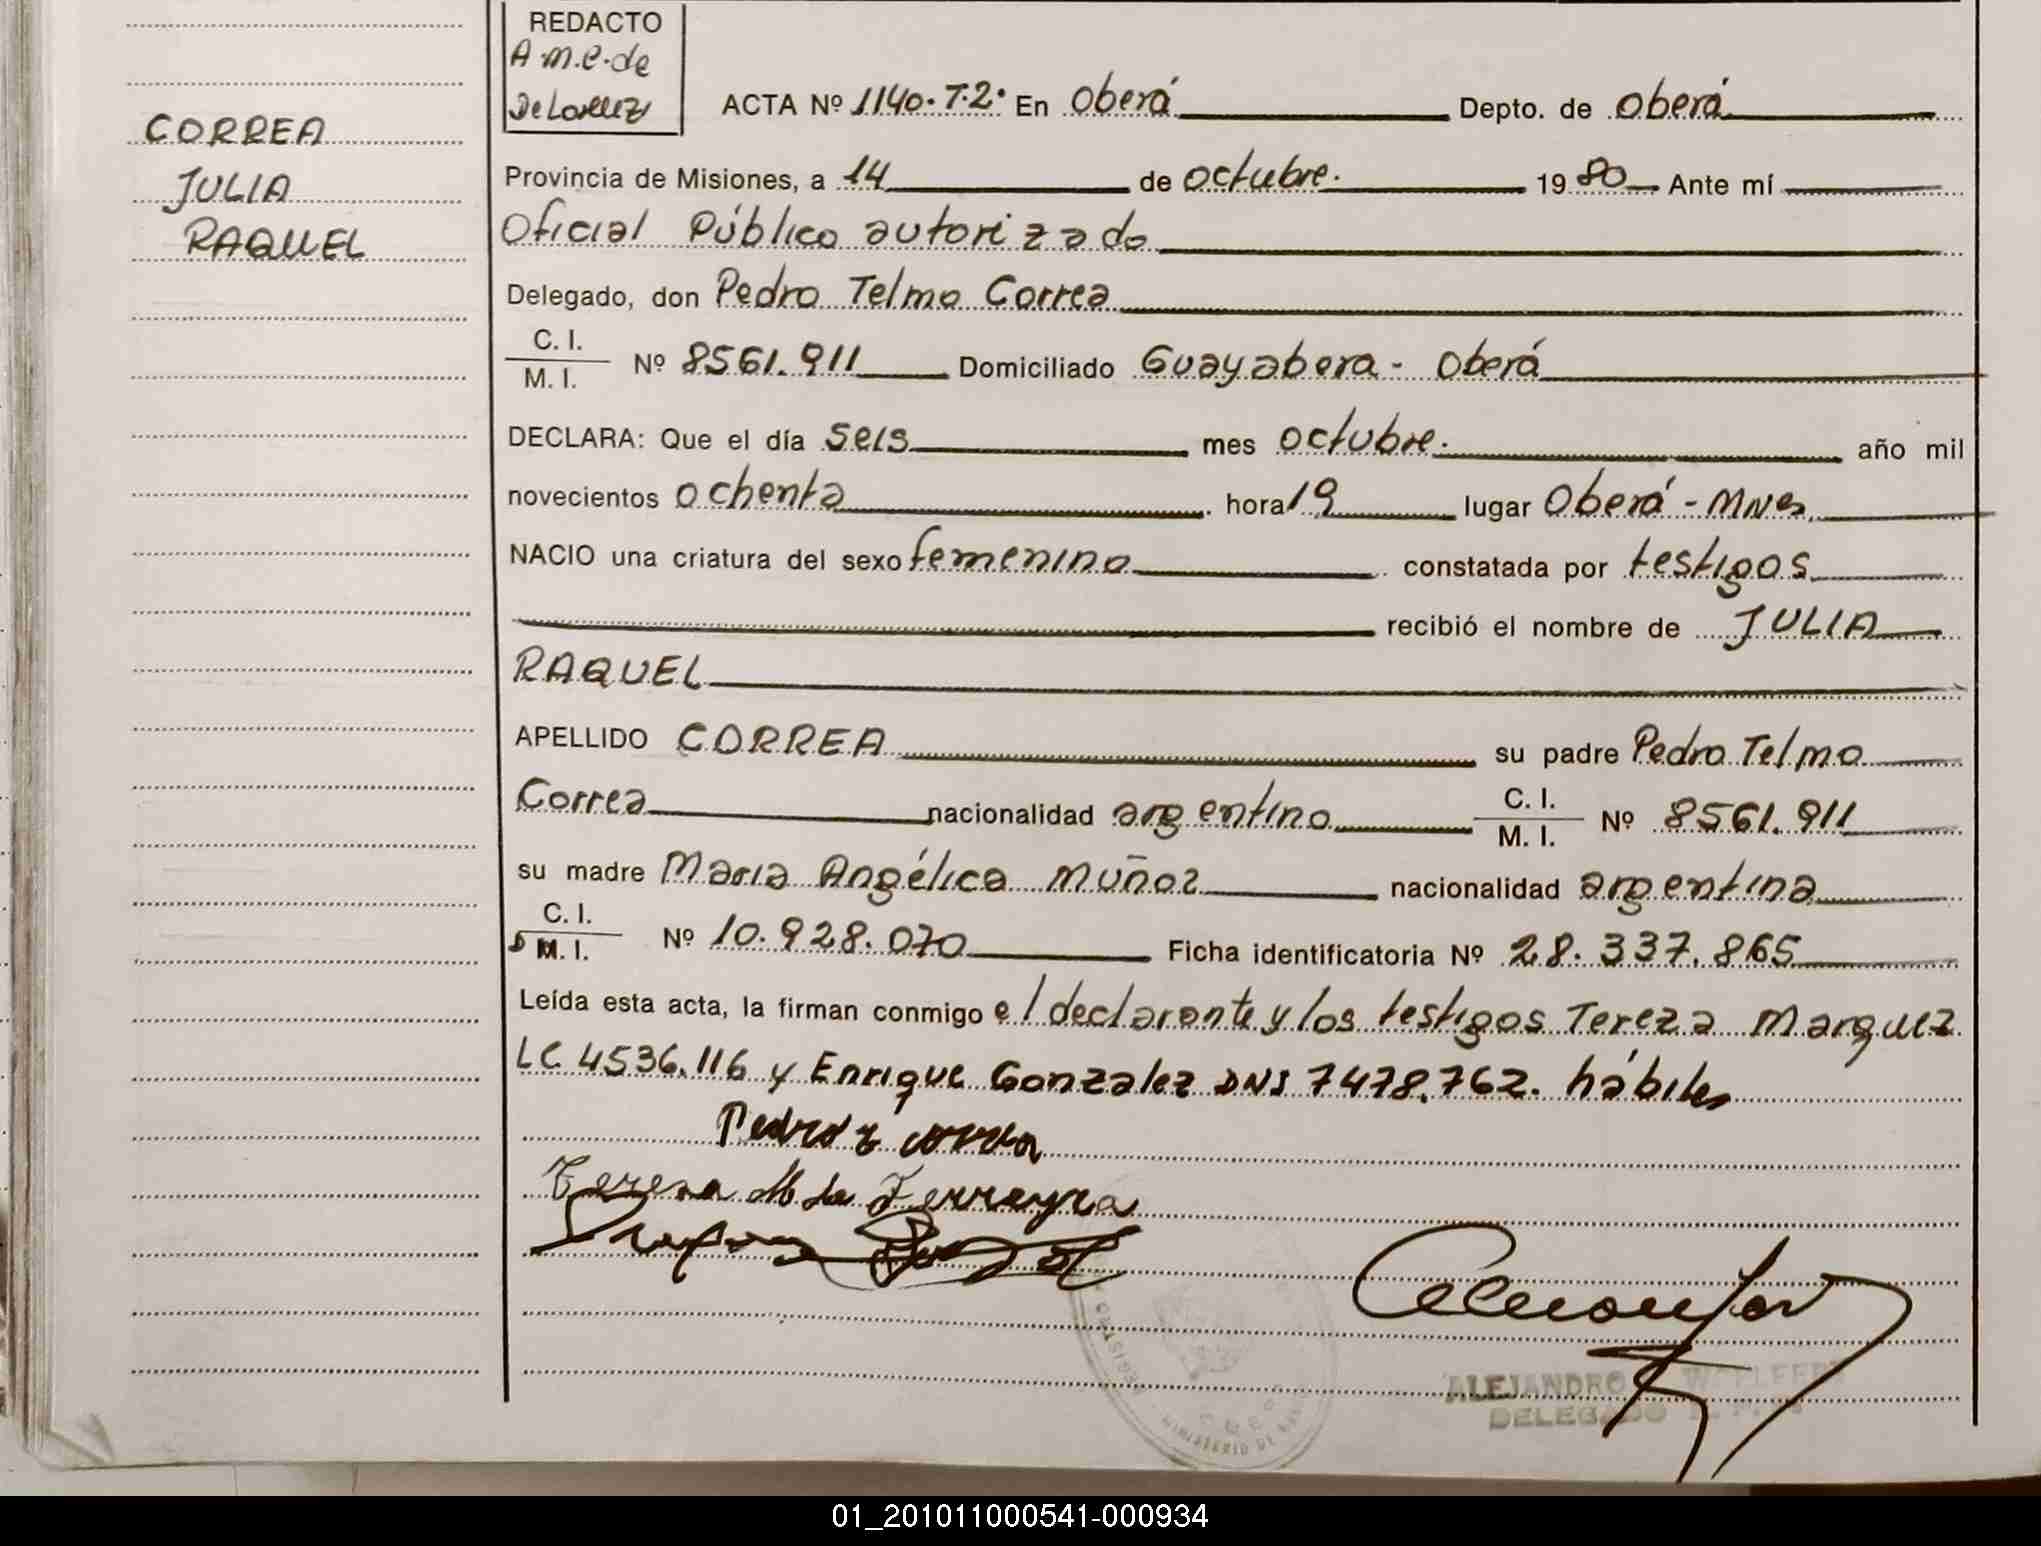 REDACTO
A.M.C. de
De Lorenz
CORREA
JULIA
RAQUEL
ACTA Nº 1140.T.2º En Oberá Depto. de Oberá
Provincia de Misiones, a 14 de octubre. 1980 Ante mí
Oficial Público autorizado
Delegado, don Pedro Telmo Correa
C. I.
M. I. Nº 8561.911 Domiciliado Guayabera - Oberá
DECLARA: Que el día seis mes octubre. año mil
novecientos ochenta hora 19 lugar Oberá - Mnes.
NACIO una criatura del sexo femenino constatada por testigos
recibió el nombre de JULIA
RAQUEL
APELLIDO CORREA su padre Pedro Telmo
Correa nacionalidad argentino C. I. M. I. Nº 8561.911
su madre Maria Angélica Muñoz nacionalidad argentina
C. I.
D M. I. Nº 10.928.070 Ficha identificatoria Nº 28.337.865
Leída esta acta, la firman conmigo el declarante y los testigos Tereza Marquez
LC 4536.116 y Enrique Gonzalez DNI 7478.762. hábiles
Pedro t correa
Teresa M de Ferreyra
ALEJANDRO
DELEGADO
MINISTERIO DE
01_201011000541-000934